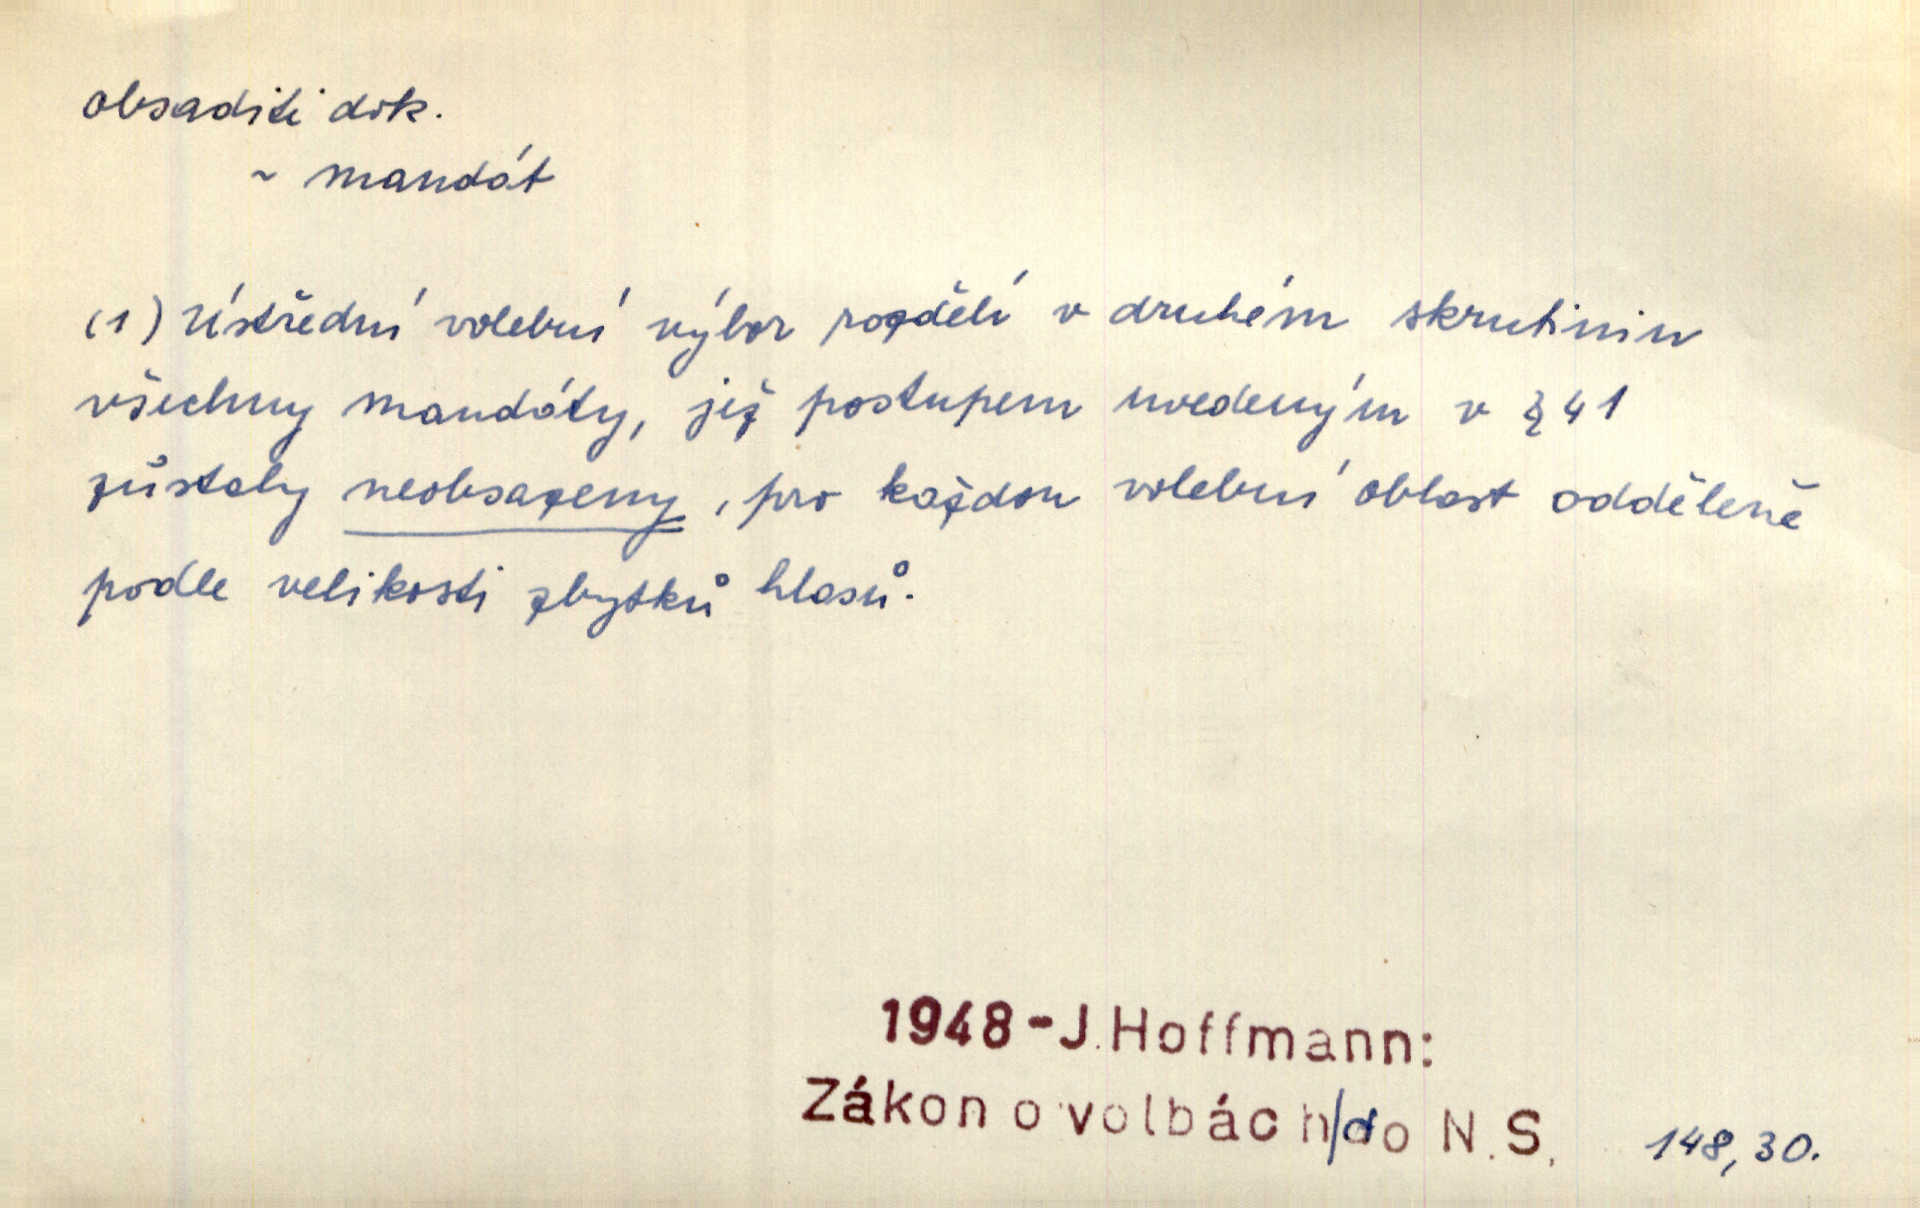 obsaditi dok.
~ mandát
(1) Ústřední volební výbor rozdělí v druhém skrutiniu
všechny mandáty, jež postupem uvedeným v § 41
zůstaly neobsazeny, pro každou volební oblast odděleně
podle velikosti zbytků hlasů.
1948 - J. Hoffmann:
Zákon o volbách/do N.S.
148, 30.